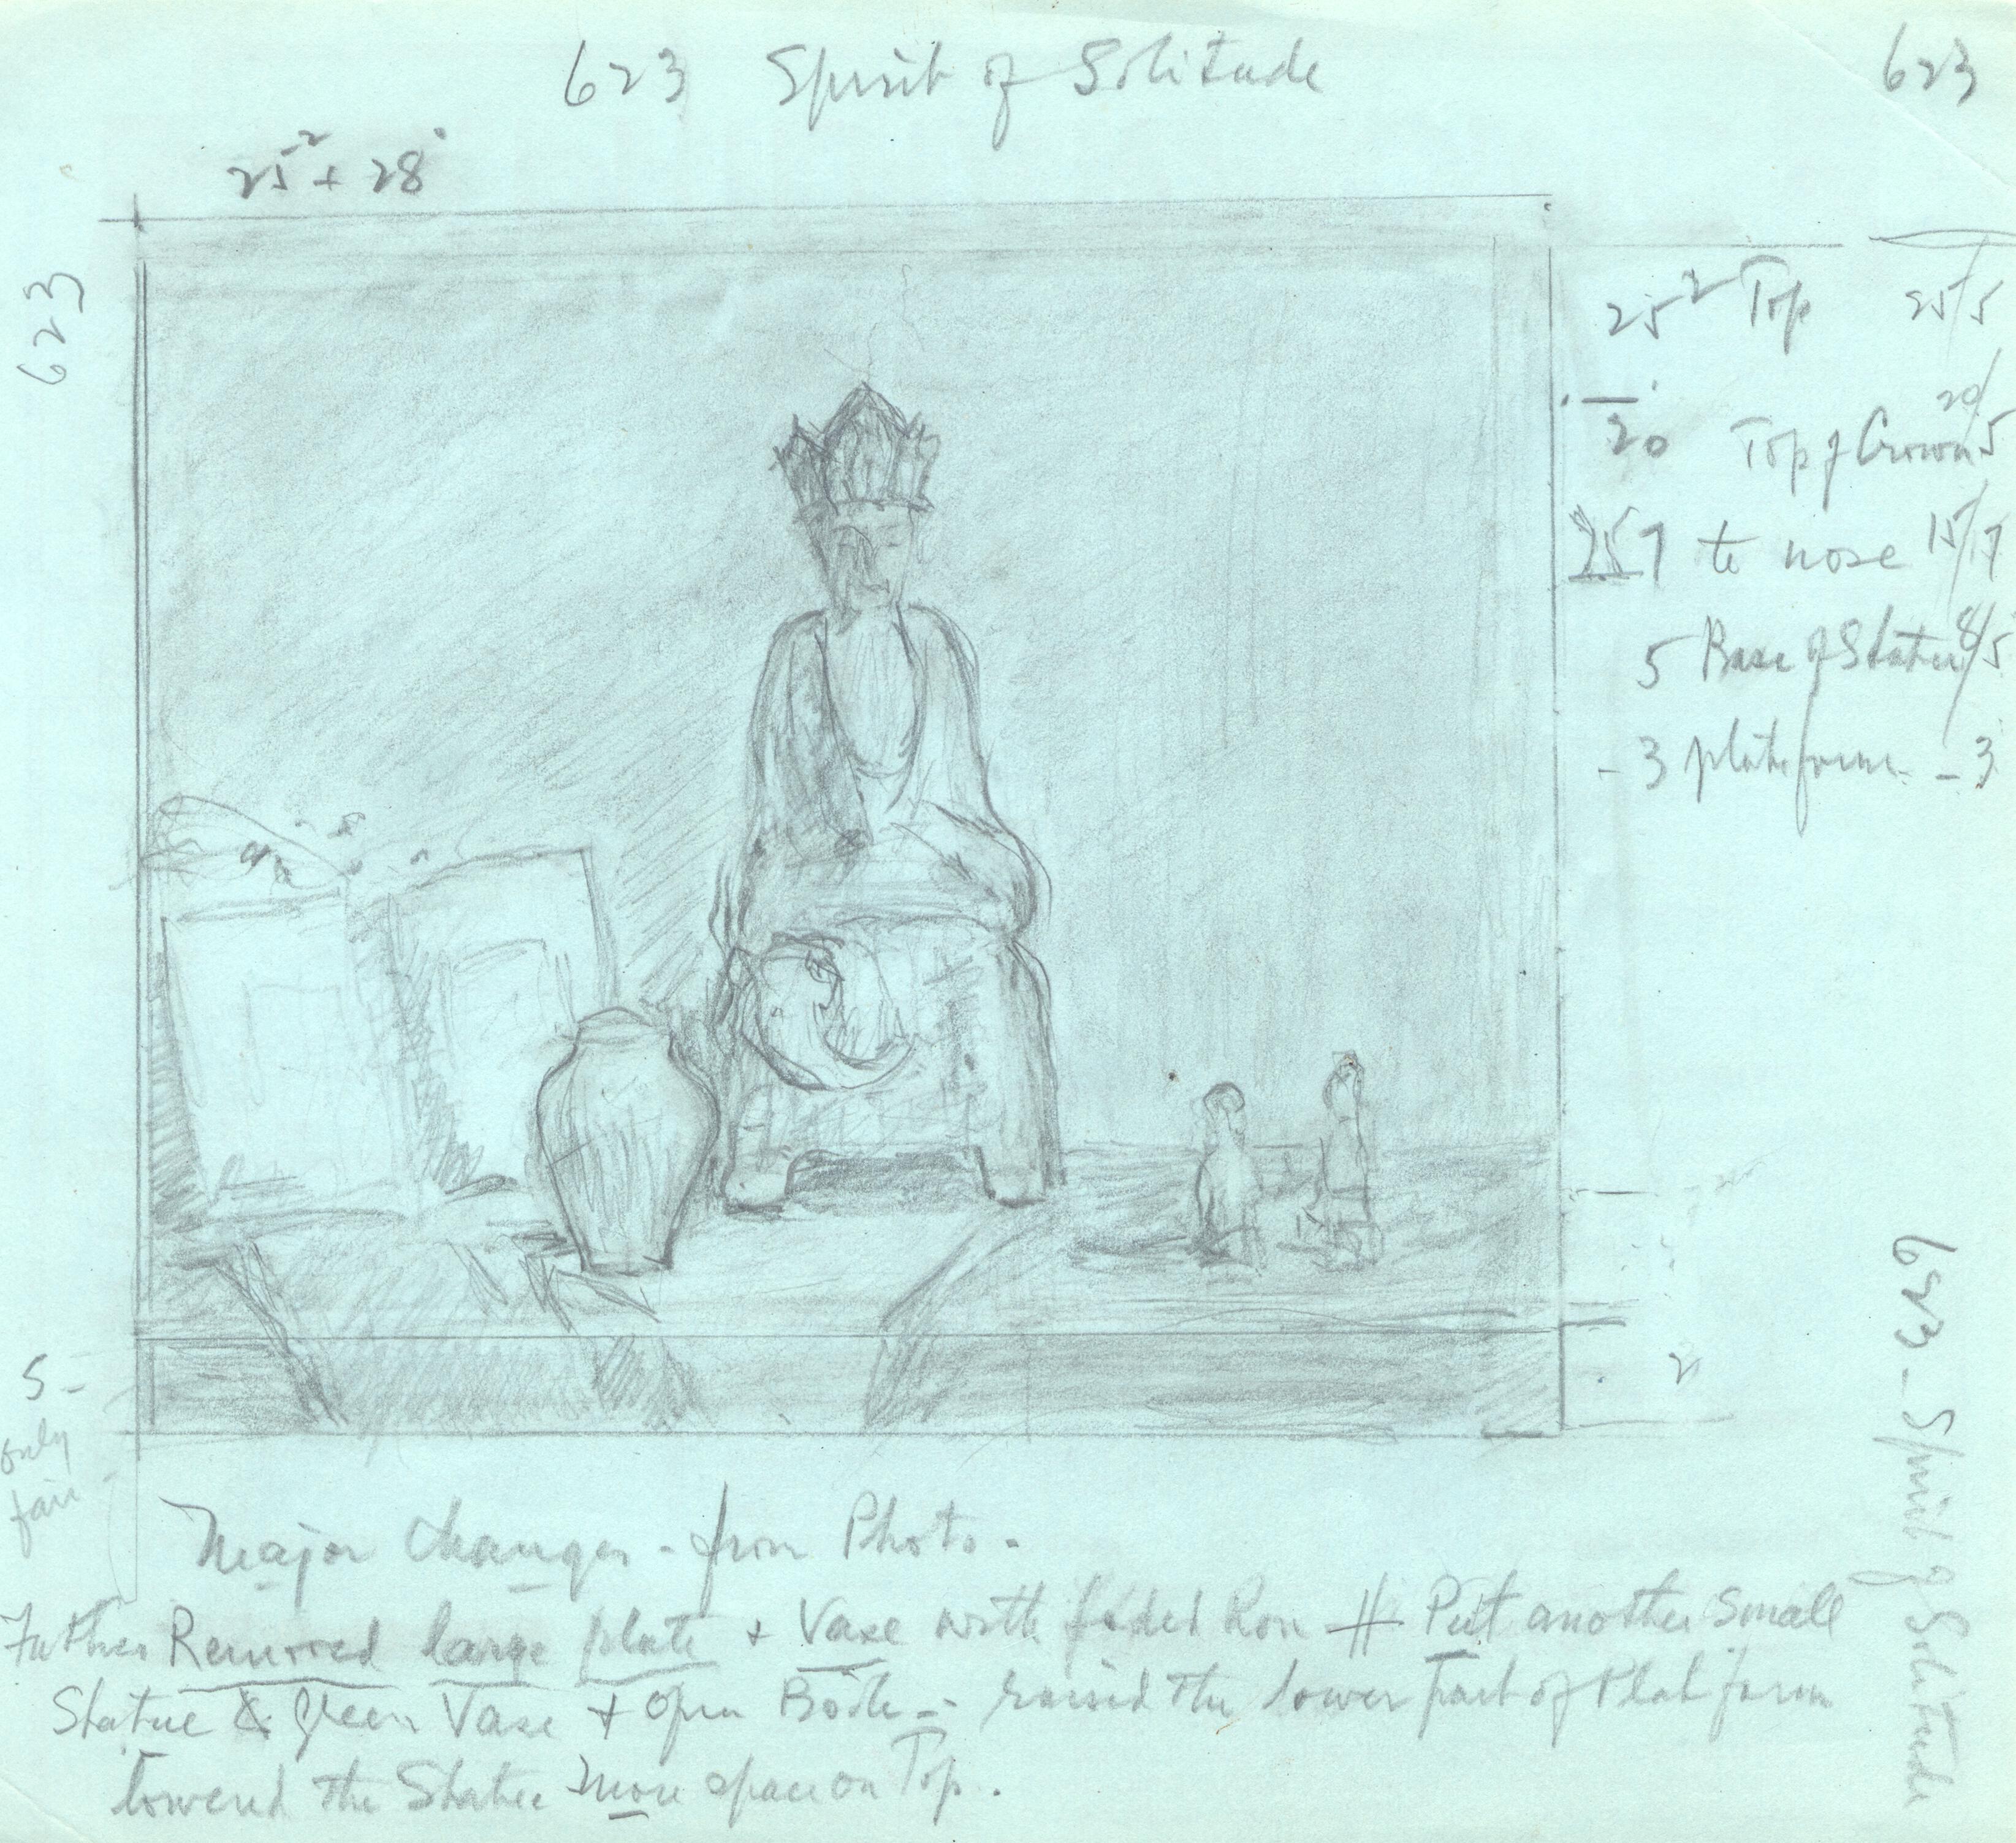 623 Spirit of Solitude
623
25² + 28
623
25² Top 25/5
20 Top of Crown 20/5
7 to nose 15/7
5 Base of Statue 8/5
- 3 plateform - - 3
2
5 -
only
fair
623 - Spirit of Solitude
Major Changes - from Photo -
Removed large plate + Vase with faded # Put another small
Statue & green Vase + open Book - raised the lower part of Platform
lowered the Statue more space on Top.